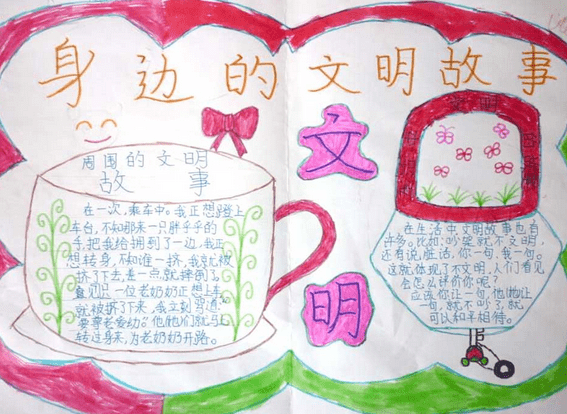 身边的文明故事
周围的文明
故事
在一次,乘车中。我正想蹬上
车台,不知那来一只胖乎乎的
手,把我给拥到了一边,我正
想转身,不知谁一挤,我就被
挤下去,差一点就摔倒了。
只一位老奶奶正想上车
就被挤了下来,我立刻
要尊老爱幼。”他们就马上
转过身来,为老奶奶开路。
文
明
文明
在生活中文明故事也有
许多。比如:吵架就不文明,
还有说脏话,你一句,我一句。
这就体现了不文明,人们看见
会怎么评价你呢?
应该你让一句,他让
一句,就不吵了,就
可以和平相待。